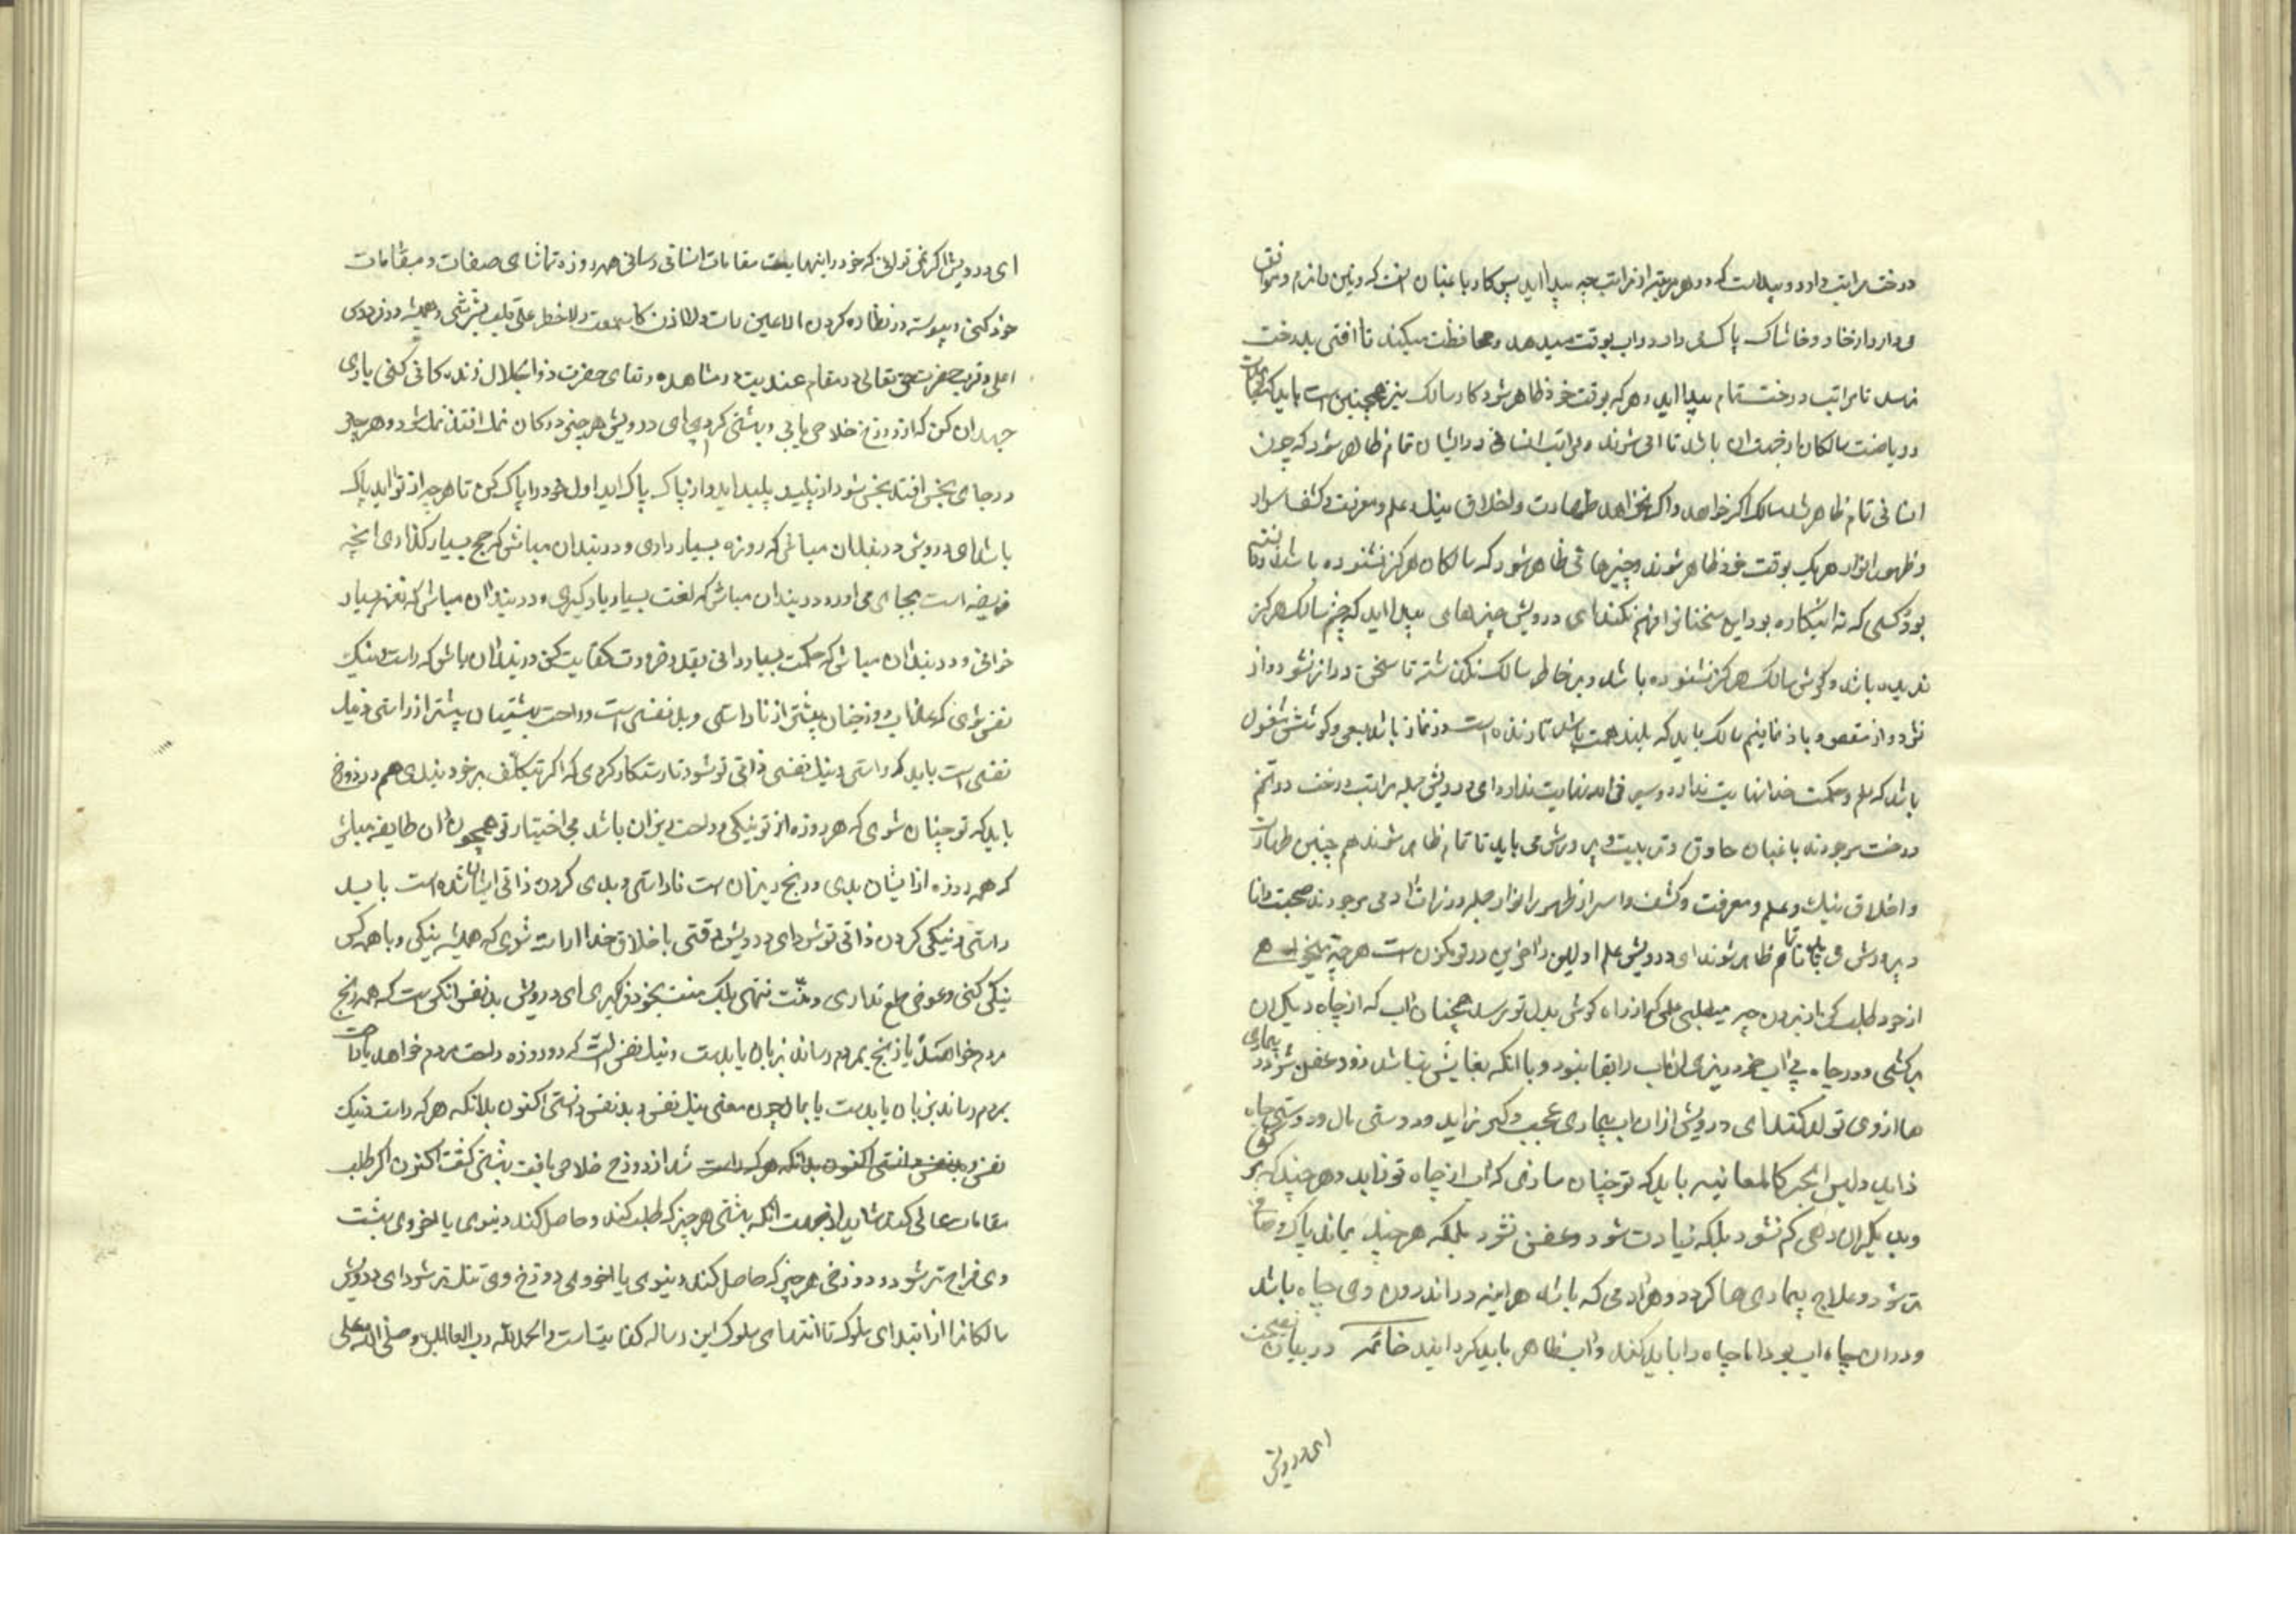 درخت مراتب دارد و پیداست که در هر مرتبه از مراتب چه پیدا اید پس کار باغبان انست که زمین را نرم و موافق
می دارد از خار و خاشاک پاک می دارد و اب بوقت میدهد و محافظت میکند تا افتی بدرخت
نرسد تا مراتب درخت تمام پیدا اید و هر که بوقت خود ظاهر شود کار سالک نیز همچنین است باید که
ریاضت سالکان از جهت ان باشد تا ادمی شوند و مراتب انسانی در ایشان تمام ظاهر شود که چون
انسانی تمام ظاهر شد سالک اگر خواهد و اگر نخواهد طهارت و اخلاق نیک و علم و معرفت و کشف اسرار
و ظهور انوار هر یک بوقت خود ظاهر شوند و چیزهائی ظاهر شود که سالکان هرگز نشنوده باشد و ندانسته
بود کسی که نه در اینکار بود این سخنانرا فهم نکند ای درویش چیزهایی پیدا اید که چشم سالک هرگز
ندیده باشد و گوش سالک هرگز نشنوده باشد و بر خاطر سالک نگذشته تا سخن دراز نشود و از
نشود و از مقصود باز نمانیم سالک باید که بلند همت باشد تا زنده است در نماز باشد بسعی و کوشش مشغول
باشد که علم و حکمت خدا نهایت ندارد و سیر فی الله نهایت ندارد ای درویش جمله مراتب درخت در تخم
درخت موجودند باغبان حاذق و تربیت و پرورش می باید تا تمام ظاهر شوند هم چنین طهارت
و اخلاق نیک و علم و معرفت و کشف و اسرار ظهور انوار جمله در ذات ادمی موجودند صحبت دانا
و پرورش می باید تا تمام ظاهر شوند ای درویش علم اولین و اخرین در تو مکنون است هر چه میخواهی
از خود طلب کن از بیرون چه میطلبی علمی که از راه گوش بدل تو رسد همچنان اب که از چاه دیگران
بر کشی و در چاه بی اب خود ریزی ان اب را بقا نبود و با انکه بقایش نباشد زود عفن شود و بیماری
ها از وی تولد کند ای درویش از ان اب بیماری عجب و کبر زاید و دوستی مال و دوستی جاه
زاید و لیس الخبر کالمعاینه باید که تو چنان سازی که اب از چاه تو زاید و هر چند که بر کشی
و بدیگران دهی کم نشود بلکه زیادت شود و عفن نشود بلکه هر چند بماند پاک و صافی
تر شود و علاج بیماری ها گردد و هر ادمی که باشد هراینه در اندرون وی چاه باشد
و در ان چاه اب بود اما چاه را باید کند و اب ظاهر باید گردانید خاتمه در بیان نصیحت
ای درویش
ای درویش اگر نمی توانی که خود را بنهایت مقامات انسانی رسانی هر روزه تماشای صفات و مقامات
خود کنی و پیوسته در نظاره کردن لا عین رات و لا اذن سمعت و لا خطر علی قلب بشر باشی و همیشه در فردوس
اعلی و قرب حضرت حق تعالی در مقام عندیت در مشاهده و لقای حضرت ذو الجلال زندگانی کنی باری
جهد ان کن که از دوزخ خلاص یابی و بهشتی گردی ای درویش هر چیز در کان نمک افتد نمک شود و هر چه
در جای نجس افتد نجس شود از پلید پلید اید و از پاک پاک اید اول خود را پاک کن تا هر چه از تو اید پاک
باشد ای درویش در بند ان مباش که روزه بسیار داری و در بند ان مباش که حج بسیار گذاری انچه
فریضه است بجای می اور و در بند ان مباش که لغت بسیار یاد گیری و در بند ان مباش که شعر بسیار
خوانی و در بند ان مباش که حکمت بسیار دانی بقدر ضرورت کفایت کن در بند ان باش که راست و نیک
نفس شوی که عذاب دوزخیان بیشتر از ناراستی و بد نفسی است و راحت بهشتیان بیشتر از راستی و نیک
نفسی است باید که راستی و نیک نفسی ذاتی تو شود تا رستگار گردی که اگر بتکلف بر خود بندی هم در دوزخ
باید که تو چنان شوی که هر روزه از تو نیکی و راحت ریزان باشد بی اختیار تو همچون ان طایفه مباش
که همه روزه از ایشان بدی و رنج ریزان است ناراستی و بدی کردن ذاتی ایشان شده است باید
راستی و نیکی کردن ذاتی تو شود ای درویش وقتی باخلاق خدا اراسته شوی که همیشه نیکی و با همه کس
نیکی کنی و عوض طمع نداری و منت ننهی بلکه منت بخود گیری ای درویش بد نفس انکس است که همه رنج
مردم خواهد یا رنج بمردم رساند بزبان یا بدست و نیک نفس انست که روزه راحت مردم خواهد یا راحت
بمردم رساند بزبان یا بدست یا بمال چون معنی نیک نفس و بد نفس دانستی اکنون بدانکه هر که راست و نیک
نفس و بد نفس دانستی اکنون بدانکه هر که راست شد از دوزخ خلاص یافت بهشتی گشت اکنون اگر طلب
مقامات عالی کند شاید از بهر انکه بهشتی هر چیز که طلب کند و حاصل کند دنیوی یا اخروی بهشت
وی فراخ تر شود و دوزخی هر چیز که حاصل کند دنیوی یا اخروی دوزخ وی تنک تر شود ای درویش
سالکانرا از ابتدای سلوک تا انتهای سلوک این رساله کفایت است و الحمد لله رب العالمین و صلی الله علی